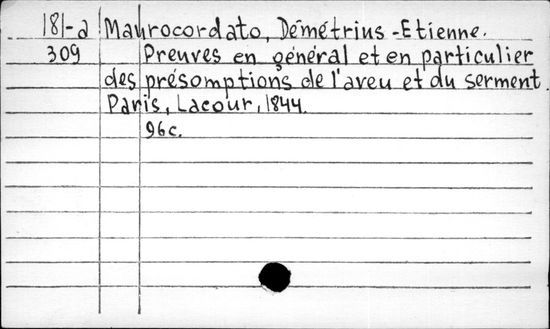 181-a Maurocordato, Démétrius-Etienne.
309 Preuves en général et en particulier
des présomptions de l'aveu et du serment.
Paris, Lacour, 1844.
96c.